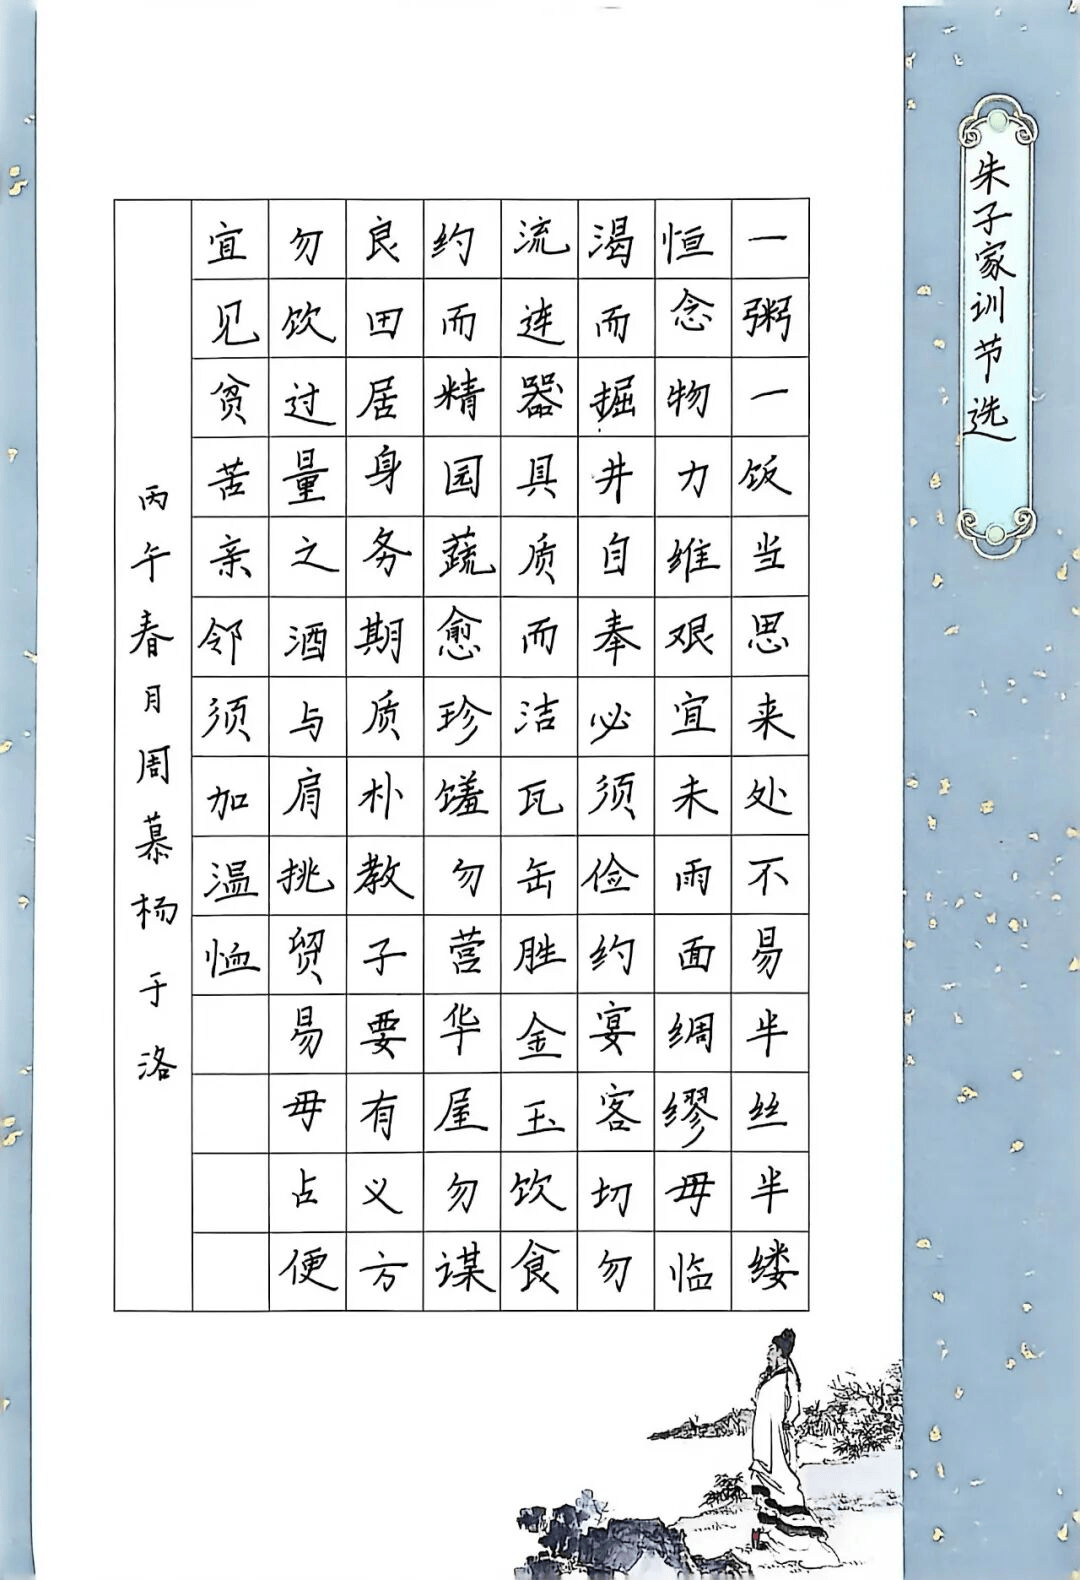 朱子家训节选
一粥一饭当思来处不易半丝半缕
恒念物力维艰宜未雨面绸缪毋临
渴而掘井自奉必须俭约宴客切勿
流连器具质而洁瓦缶胜金玉饮食
约而精园蔬愈珍馐勿营华屋勿谋
良田居身务期质朴教子要有义方
勿饮过量之酒与肩挑贸易毋占便
宜见贫苦亲邻须加温恤
丙午春月周慕杨于洛